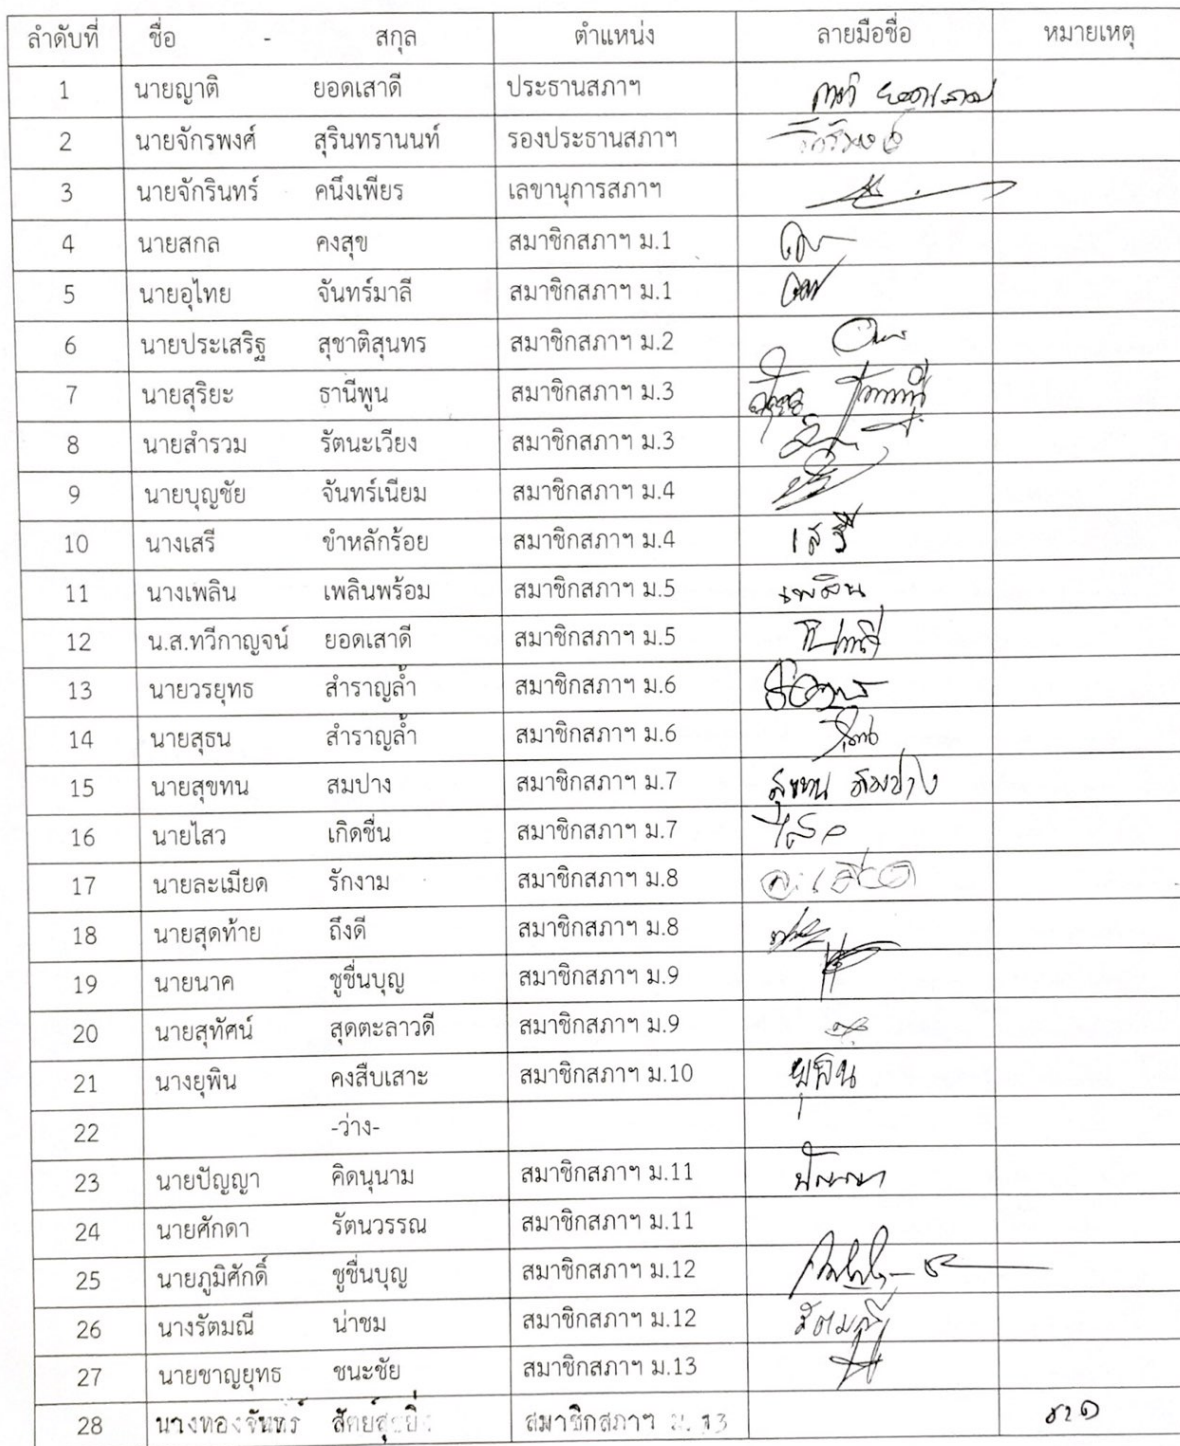 ลำดับที่ ชื่อ - สกุล ตำแหน่ง ลายมือชื่อ หมายเหตุ
1 นายญาติ ยอดเสาดี ประธานสภาฯ
2 นายจักรพงศ์ สุรินทรานนท์ รองประธานสภาฯ
3 นายจักรินทร์ คนึงเพียร เลขานุการสภาฯ
4 นายสกล คงสุข สมาชิกสภาฯ ม.1
5 นายอุไทย จันทร์มาลี สมาชิกสภาฯ ม.1
6 นายประเสริฐ สุชาติสุนทร สมาชิกสภาฯ ม.2
7 นายสุริยะ ธานีพูน สมาชิกสภาฯ ม.3
8 นายสำรวม รัตนะเวียง สมาชิกสภาฯ ม.3
9 นายบุญชัย จันทร์เนียม สมาชิกสภาฯ ม.4
10 นางเสรี ขำหลักร้อย สมาชิกสภาฯ ม.4 เสรี
11 นางเพลิน เพลินพร้อม สมาชิกสภาฯ ม.5 เพลิน
12 น.ส.ทวีกาญจน์ ยอดเสาดี สมาชิกสภาฯ ม.5
13 นายวรยุทธ สำราญล้ำ สมาชิกสภาฯ ม.6
14 นายสุธน สำราญล้ำ สมาชิกสภาฯ ม.6
15 นายสุขทน สมปาง สมาชิกสภาฯ ม.7 สุขทน สมปาง
16 นายไสว เกิดชื่น สมาชิกสภาฯ ม.7 ไสว
17 นายละเมียด รักงาม สมาชิกสภาฯ ม.8
18 นายสุดท้าย ถึงดี สมาชิกสภาฯ ม.8
19 นายนาค ชูชื่นบุญ สมาชิกสภาฯ ม.9
20 นายสุทัศน์ สุดตะลาวดี สมาชิกสภาฯ ม.9
21 นางยุพิน คงสืบเสาะ สมาชิกสภาฯ ม.10 ยุพิน
22 -ว่าง-
23 นายปัญญา คิดนุนาม สมาชิกสภาฯ ม.11 ปัญญา
24 นายศักดา รัตนวรรณ สมาชิกสภาฯ ม.11
25 นายภูมิศักดิ์ ชูชื่นบุญ สมาชิกสภาฯ ม.12
26 นางรัตมณี น่าชม สมาชิกสภาฯ ม.12 รัตมณี
27 นายชาญยุทธ ชนะชัย สมาชิกสภาฯ ม.13
28 นางทองจันทร์ สมาชิกสภาฯ ม.13 ขาด